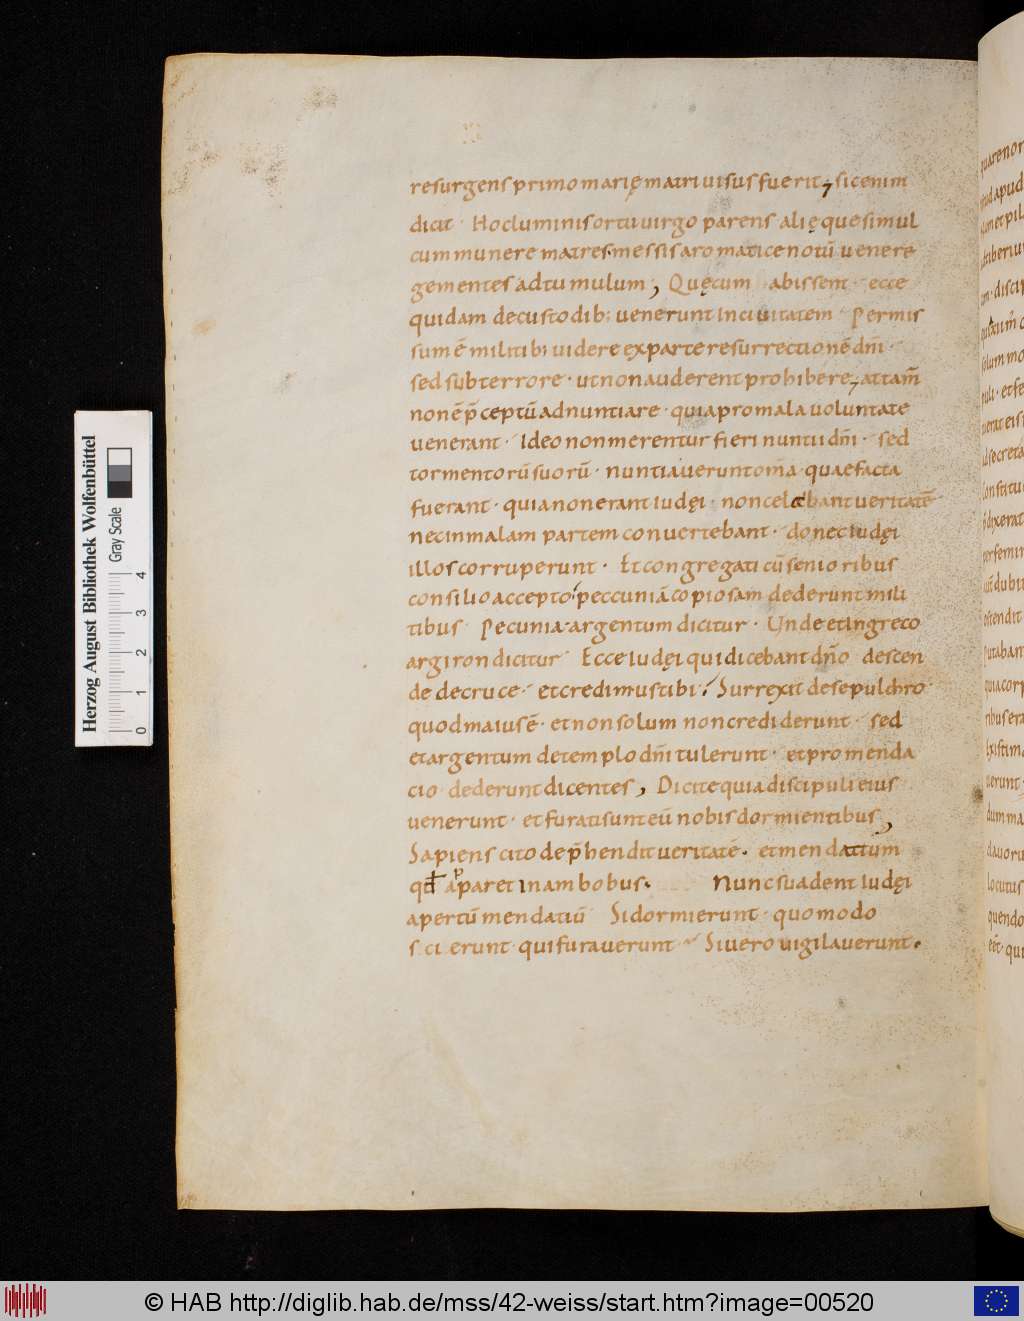 resurgens primo marię matri uisus fuerit; sicenim
dicit · Hoc luminis ortu uirgo parens alięque simul
cum munere matres · messis aromatice notū uenere
gementes ad tumulum, Quęcum abissent · ecce
quidam decustodib; uenerunt In ciuitatem · Permis
sum ē militib; uidere exparte resurrectionē dn̄i ·
sed sub terrore · ut non auderent prohibere; attam̄
non ē p̄ceptū adnuntiare · quia pro mala uoluntate
uenerant · Ideo non merentur fieri nuntii dn̄i · sed
tormentorū suorū · nuntiaverunt om̄a · quae facta
fuerant · quia non erant iudęi · non celabant ueritatē
nec in malam partem conuertebant · donec iudęi
illos corruperunt · Et congregati cū senioribus
consilio accepto · peccuniā copiosam dederunt mili
tibus · Pecunia · argentum dicitur · Unde et Ingreco
argiron dicitur · Ecce iudęi qui dicebant dn̄o descen
de de cruce · et credimus tibi · Surrexit de sepulchro ·
quod maius ē · et non solum non crediderunt · sed
et argentum de templo dn̄i tulerunt · et pro menda
cio dederunt dicentes, Dicite quia discipuli eius
uenerunt · et furati sunt eū nobis dormientibus,
Sapiens cito dep̄hendit ueritatē · et mendatium
qđ apparet in ambobus. Nunc suadent iudęi
apertū mendatiū Si dormierunt · quomodo
scierunt qui furauerunt Si uero uigilauerunt.
Herzog August Bibliothek Wolfenbüttel
Gray Scale
0 1 2 3 4
© HAB http://diglib.hab.de/mss/42-weiss/start.htm?image=00520